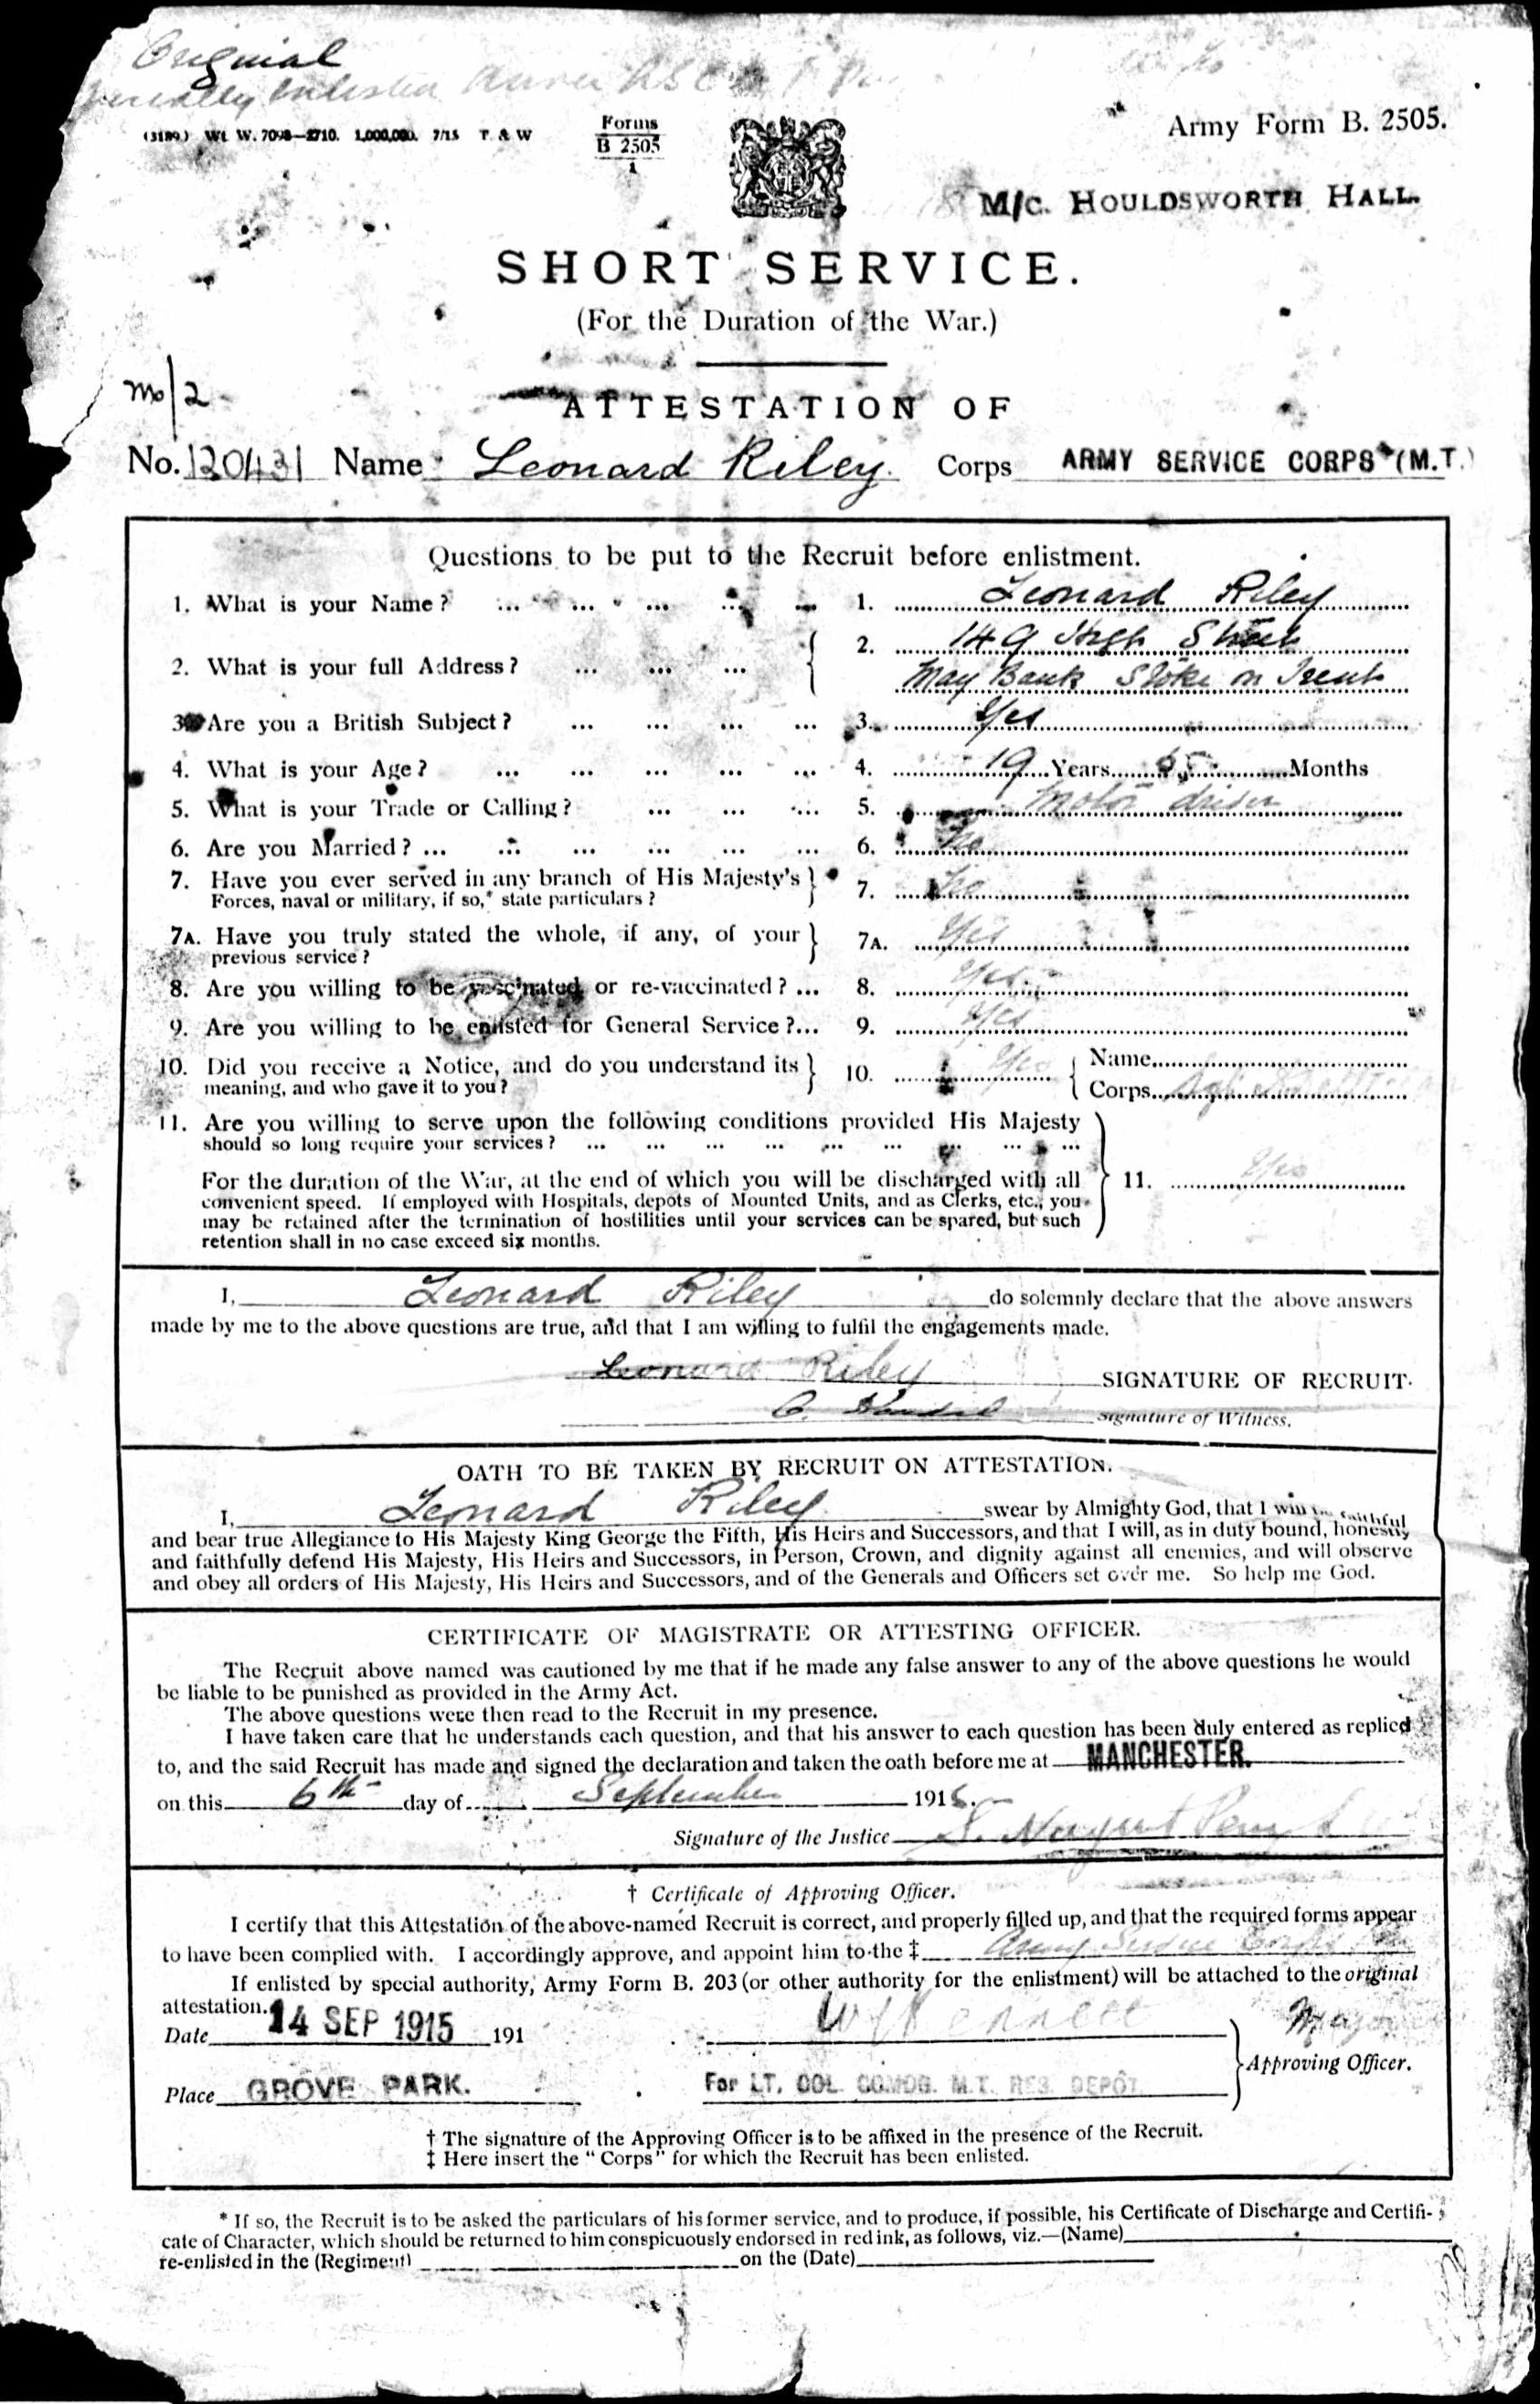 Original
(3189) Wt. W. 7098—2710. 1,000,000. 7/15 T. & W
Forms
B 2505
1
Army Form B. 2505.
M/C. HOULDSWORTH HALL.
SHORT SERVICE.
(For the Duration of the War.)
M/2
ATTESTATION OF
No. 120431 Name Leonard Riley. Corps ARMY SERVICE CORPS (M.T.)
Questions to be put to the Recruit before enlistment.
1. What is your Name? ... ... ... ... ... 1. Leonard Riley
2. What is your full Address? ... ... ... 2. 149 High Street
May Bank Stoke on Trent
3. Are you a British Subject? ... ... ... ... 3. Yes
4. What is your Age? ... ... ... ... ... 4. 19 Years 5 Months
5. What is your Trade or Calling? ... ... ... 5. Motor driver
6. Are you Married? ... ... ... ... ... ... 6. No
7. Have you ever served in any branch of His Majesty's
Forces, naval or military, if so,* state particulars? 7. No
7A. Have you truly stated the whole, if any, of your
previous service? 7A. Yes
8. Are you willing to be vaccinated or re-vaccinated? ... 8. Yes
9. Are you willing to be enlisted for General Service?... 9. Yes
10. Did you receive a Notice, and do you understand its
meaning, and who gave it to you? 10. Yes Name
Corps
11. Are you willing to serve upon the following conditions provided His Majesty
should so long require your services? ... ... ... ... ... ... ... ...
For the duration of the War, at the end of which you will be discharged with all 11. Yes
convenient speed. If employed with Hospitals, depots of Mounted Units, and as Clerks, etc., you
may be retained after the termination of hostilities until your services can be spared, but such
retention shall in no case exceed six months.
I, Leonard Riley do solemnly declare that the above answers
made by me to the above questions are true, and that I am willing to fulfil the engagements made.
Leonard Riley SIGNATURE OF RECRUIT.
Signature of Witness.
OATH TO BE TAKEN BY RECRUIT ON ATTESTATION.
I, Leonard Riley swear by Almighty God, that I will be faithful
and bear true Allegiance to His Majesty King George the Fifth, His Heirs and Successors, and that I will, as in duty bound, honestly
and faithfully defend His Majesty, His Heirs and Successors, in Person, Crown, and dignity against all enemies, and will observe
and obey all orders of His Majesty, His Heirs and Successors, and of the Generals and Officers set over me. So help me God.
CERTIFICATE OF MAGISTRATE OR ATTESTING OFFICER.
The Recruit above named was cautioned by me that if he made any false answer to any of the above questions he would
be liable to be punished as provided in the Army Act.
The above questions were then read to the Recruit in my presence.
I have taken care that he understands each question, and that his answer to each question has been duly entered as replied
to, and the said Recruit has made and signed the declaration and taken the oath before me at MANCHESTER.
on this 6th day of September 1915.
Signature of the Justice
† Certificate of Approving Officer.
I certify that this Attestation of the above-named Recruit is correct, and properly filled up, and that the required forms appear
to have been complied with. I accordingly approve, and appoint him to the ‡ Army Service Corps
If enlisted by special authority, Army Form B. 203 (or other authority for the enlistment) will be attached to the original
attestation.
Date 14 SEP 1915 191
Major
Approving Officer.
Place GROVE PARK. For LT. COL. COMDG. M.T. RES. DEPÔT
† The signature of the Approving Officer is to be affixed in the presence of the Recruit.
‡ Here insert the "Corps" for which the Recruit has been enlisted.
* If so, the Recruit is to be asked the particulars of his former service, and to produce, if possible, his Certificate of Discharge and Certifi-
cate of Character, which should be returned to him conspicuously endorsed in red ink, as follows, viz.—(Name)
re-enlisted in the (Regiment) on the (Date)